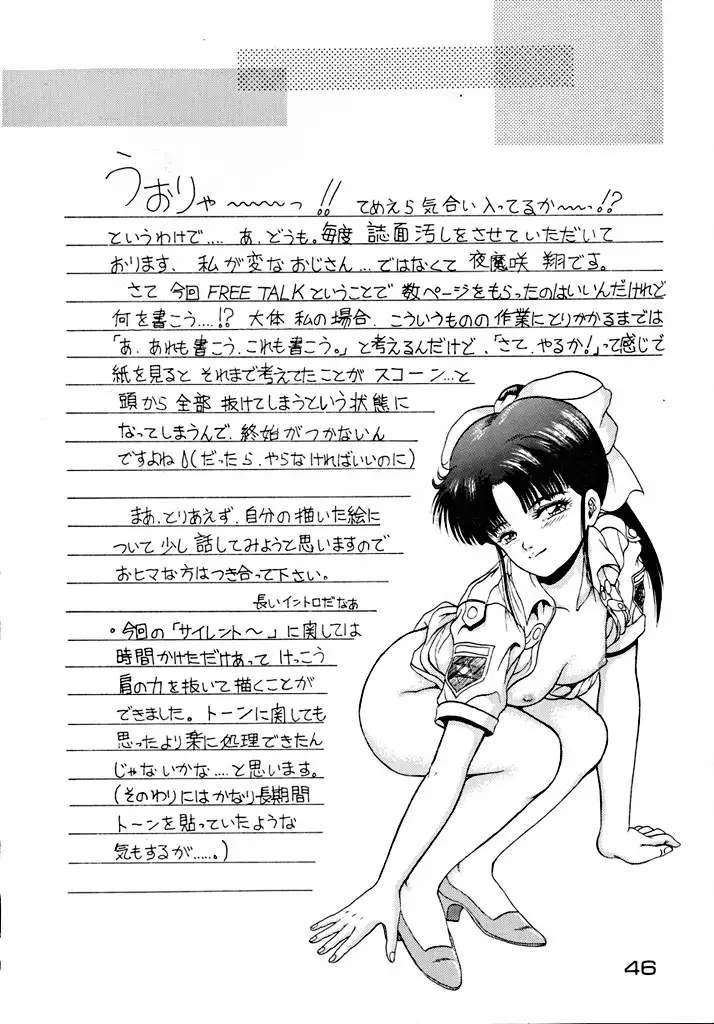 うおりゃ〜〜〜っ!! てめえら気合い入ってるか〜〜っ!?
というわけで.... あ、どうも。毎度 誌面汚しをさせていただいて
おります、私が変なおじさん...ではなくて 夜魔咲 翔です。
さて 今回 FREE TALKということで 数ページをもらったのはいいんだけれど
何を書こう....!? 大体 私の場合、こういうものの作業にとりかかるまでは
「あ、あれも書こう、これも書こう。」と考えるんだけど、「さて、やるか!」って感じで
紙を見ると それまで考えてたことが スコーン...と
頭から 全部 抜けてしまうという状態に
なってしまうんで、終始がつかないん
ですよね(だったら、やらなければいいのに)
まあ、とりあえず、自分の描いた絵に
ついて 少し 話してみようと思いますので
おヒマな方はつき合って下さい。
長いイントロだなぁ
・今回の「サイレント〜」に関しては
時間かけただけあって けっこう
肩の力を抜いて描くことが
できました。トーンに関しても
思ったより楽に処理できたん
じゃないかな....と思います。
(そのわりにはかなり長期間
トーンを貼っていたような
気もするが.....。)
46